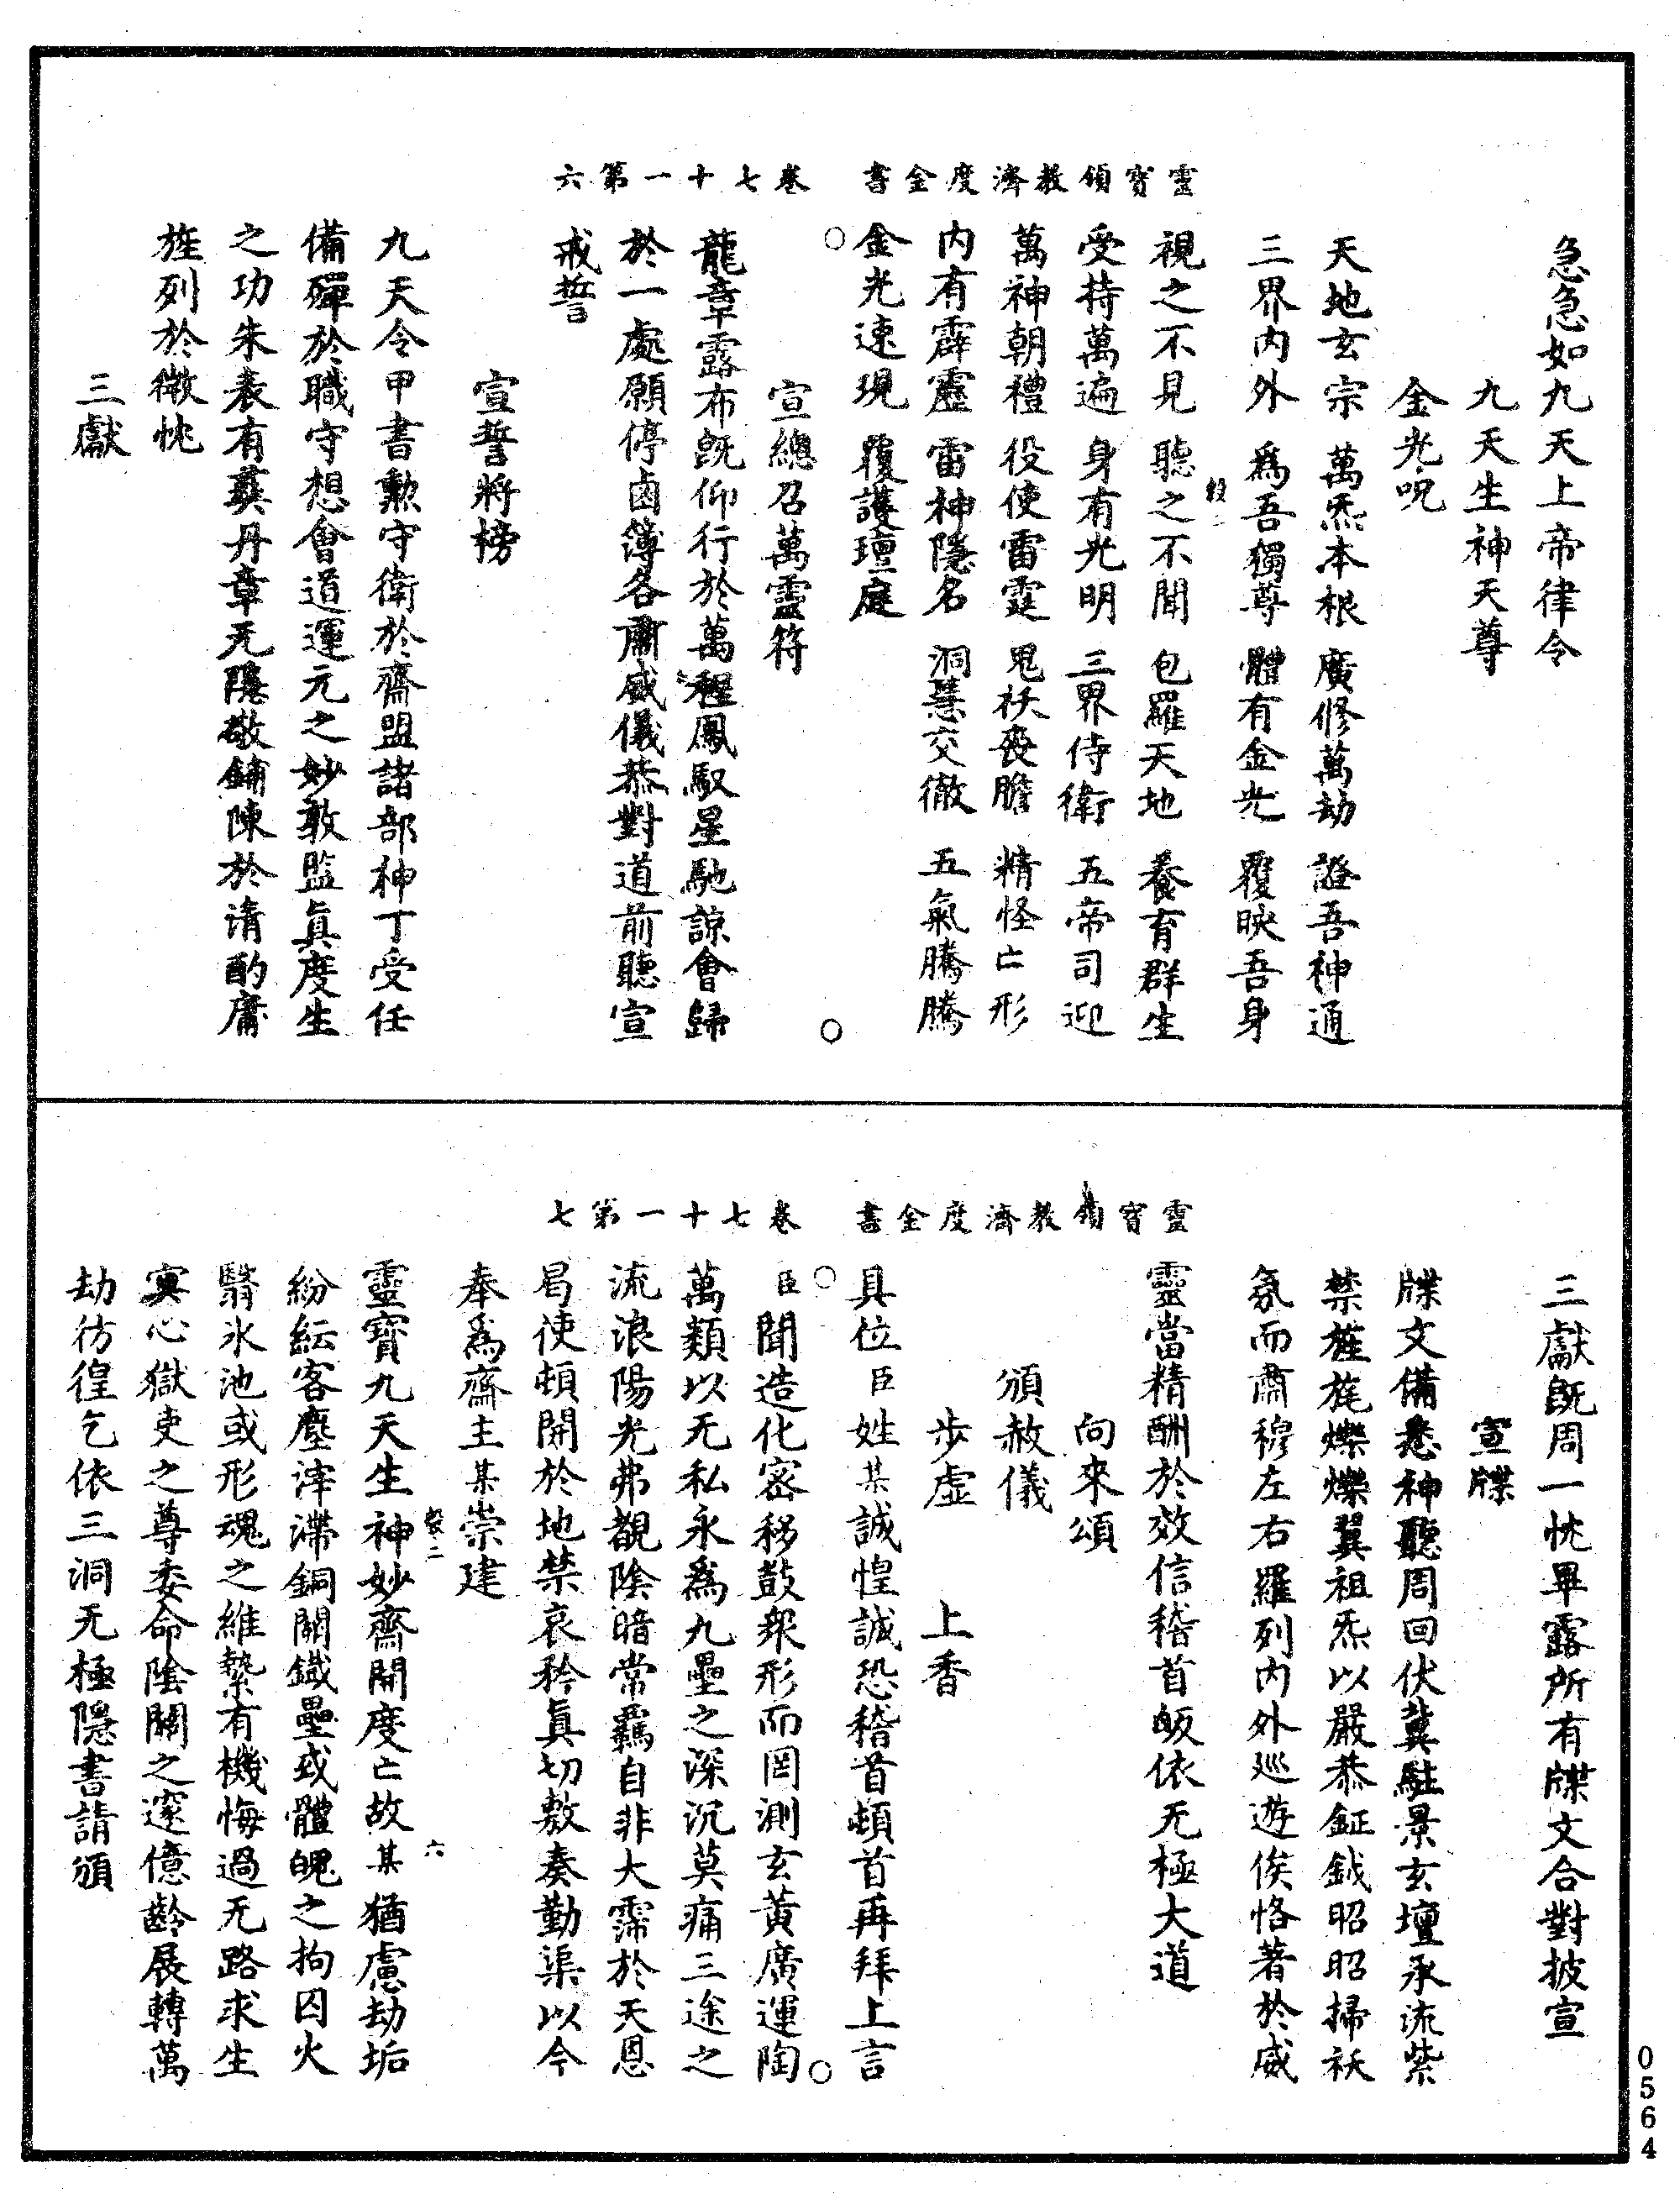 急急如九天上帝律令
九天生神天尊
金光呪
天地玄宗　萬炁本根　廣修萬劫　證吾神通
三界內外　爲吾獨尊　體有金光　覆映吾身
視之不見　聽之不聞　包羅天地　養育群生
受持萬遍　身有光明　三界侍衛　五帝司迎
萬神朝禮　役使雷霆　鬼祅喪膽　精怪亡形
內有霹靂　雷神隱名　洞慧交徹　五氣騰騰
金光速現　覆護壇庭
靈寶領教濟度金書　卷七十一第六
宣總召萬靈符
龍章露布旣仰行於萬程鳳馭星馳諒會歸
於一處願停鹵簿各肅威儀恭對道前聽宣
戒誓
宣誓將榜
九天令甲書勲守衛於齋盟諸部神丁受任
備殫於職守想會道運元之妙敢監眞度生
之功朱表有彛丹章无隱敬鋪陳於清酌庸
旌列於微忱
三獻
三獻旣周一忱畢露所有牒文合對披宣
宣牒
牒文備悉神聽周回伏冀駐景玄壇承流紫
禁旌旄爍爍翼祖炁以嚴恭鉦鉞昭昭掃祅
氛而肅穆左右羅列內外廵遊俟恪著於威
靈當精酬於效信稽首皈依无極大道
向來頌
頒赦儀
步虛　上香
具位臣姓某誠惶誠恐稽首頓首再拜上言
靈寶領教濟度金書　卷七十一第七
臣聞造化密移鼓衆形而罔測玄黃廣運陶
萬類以无私永爲九壘之深沉莫痛三途之
流浪陽光弗覩陰暗常羈自非大霈於天恩
曷使頓開於地禁哀矜眞切敷奏勤渠以今
奉爲齋主某崇建
靈寶九天生神妙齋開度亡故某猶慮劫垢
紛紜客塵滓滯銅關鐡壘或體魄之拘囚火
翳氷池或形魂之維縶有機悔過无路求生
寞心獄吏之尊委命陰關之邃億齡展轉萬
劫彷徨乞依三洞无極隱書請頒
0564